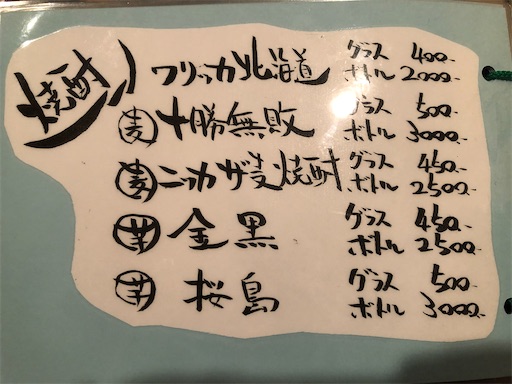 焼酎
ワリッカ北海道 グラス 400.-
ボトル 2000.-
麦 十勝無敗 グラス 500.-
ボトル 3000.-
麦 ニッカ ザ麦焼酎 グラス 450.-
ボトル 2500.-
芋 金黒 グラス 450.-
ボトル 2500.-
芋 桜島 グラス 500.-
ボトル 3000.-